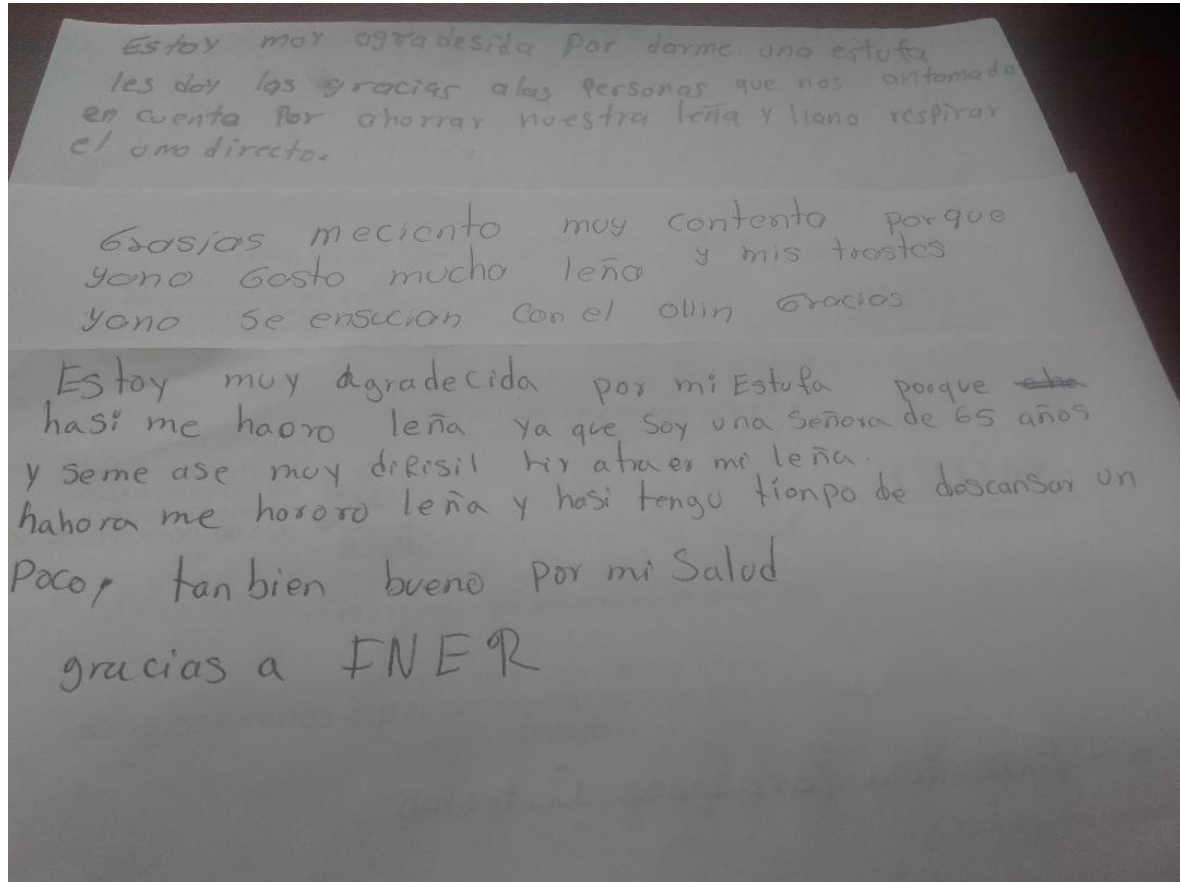 Estoy moy agradesida Por darme una estufa
les doy las gracias alas Personas que nos antomado
en cuenta Por ahorrar nuestra leña y llano respirar
el omo directo.
Grasias meciento muy contenta porque
yano Gasto mucha leña y mis trastes
yano se ensucian con el ollin Gracias
Estoy muy Agradecida por mi Estufa porque
hasi me haoro leña ya que soy una Señora de 65 años
y seme ase muy difisil hir atraer mi leña.
hahora me hororo leña y hasi tengo tionpo de descansar un
Poco, tan bien bueno por mi Salud
gracias a INER